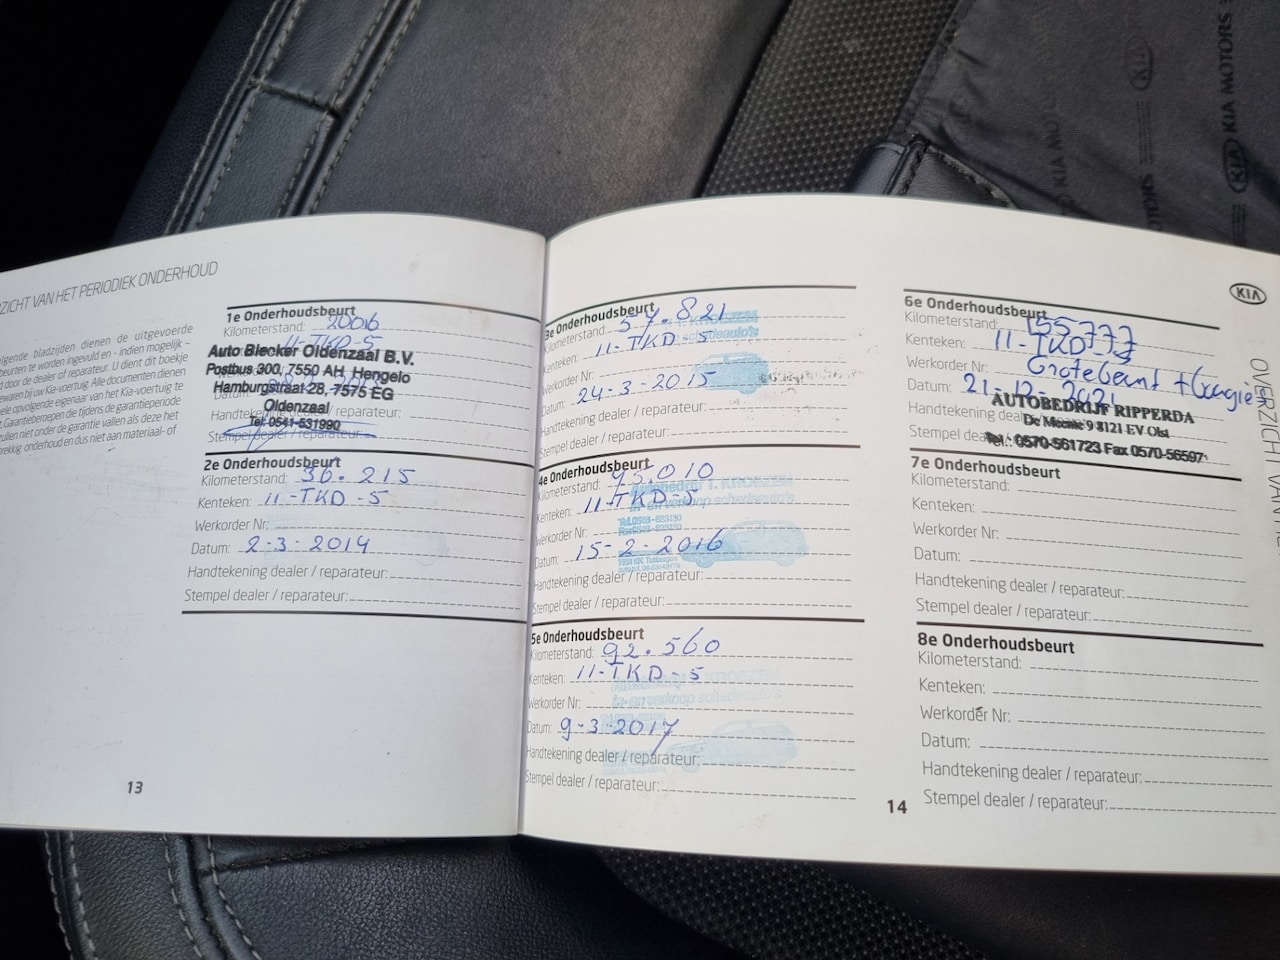 ZICHT VAN HET PERIODIEK ONDERHOUD
lgende bladzijden dienen de uitgevoerde
beurten te worden ingevuld en - indien mogelijk -
d door de dealer of reparateur. U dient dit boekje
ewaren bij uw Kia-voertuig. Alle documenten dienen
ele opvolgende eigenaar van het Kia-voertuig te
. Garantieberoepen die tijdens de garantieperiode
ullen niet onder de garantie vallen als deze het
rekkig onderhoud en dus niet aan materiaal- of
1e Onderhoudsbeurt
Kilometerstand: 20016
11-TKD-5
Auto Blecker Oldenzaal B.V.
Postbus 300, 7550 AH Hengelo
Hamburgstraat 28, 7575 EG
Oldenzaal
Tel. 0541-531990
Handtekening dealer / reparateur:
Stempel dealer / reparateur:
2e Onderhoudsbeurt
Kilometerstand: 36.215
Kenteken: 11-TKD-5
Werkorder Nr:
Datum: 2-3-2014
Handtekening dealer / reparateur:
Stempel dealer / reparateur:
13
3e Onderhoudsbeurt
Kilometerstand: 57.821
Kenteken: 11-TKD-5
Werkorder Nr:
Datum: 24-3-2015
Handtekening dealer / reparateur:
Stempel dealer / reparateur:
4e Onderhoudsbeurt
Kilometerstand: 75.010
Kenteken: 11-TKD-5
Werkorder Nr:
Datum: 15-2-2016
Handtekening dealer / reparateur:
Stempel dealer / reparateur:
5e Onderhoudsbeurt
Kilometerstand: 92.560
Kenteken: 11-TKD-5
Werkorder Nr:
Datum: 9-3-2017
Handtekening dealer / reparateur:
Stempel dealer / reparateur:
6e Onderhoudsbeurt
Kilometerstand: 155777
Kenteken: 11-TKD-5
Werkorder Nr: Grotebeurt + bougies
Datum: 21-12-2021
AUTOBEDRIJF RIPPERDA
De Meente 9 8121 EV Olst
Tel.: 0570-561723 Fax 0570-56597
Handtekening
Stempel
7e Onderhoudsbeurt
Kilometerstand:
Kenteken:
Werkorder Nr:
Datum:
Handtekening dealer / reparateur:
Stempel dealer / reparateur:
8e Onderhoudsbeurt
Kilometerstand:
Kenteken:
Werkorder Nr:
Datum:
Handtekening dealer / reparateur:
Stempel dealer / reparateur:
14
KIA
OVERZICHT VAN HE
KIA KIA MOTORS